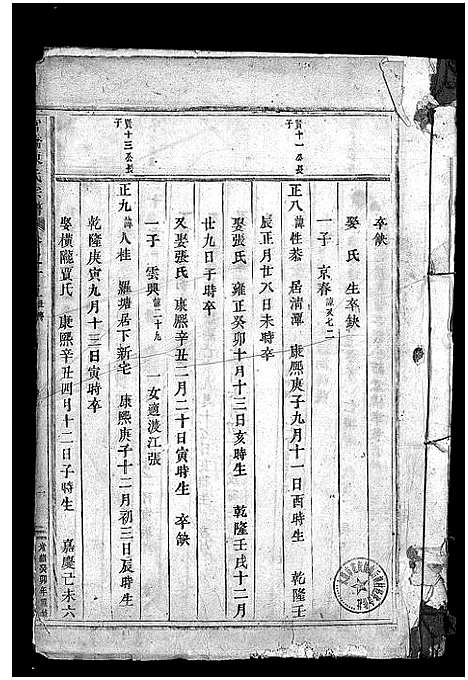 卒缺
娶 氏 生卒缺
一子 京春 諱又七二
賢十一公長子
正八 諱性恭 居清潭 康熙庚子九月十一日酉時生 乾隆壬
辰正月廿八日未時卒
娶張氏 雍正癸卯十月十三日亥時生 乾隆壬戌十二月
廿九日子時卒
又娶張氏 康熙辛丑二月二十日寅時生 卒缺
一子 雲興 諱二十九 一女適渡江張
賢十三公長子
正九 諱人桂 羅塘居下新宅 康熙庚子十二月初三日辰時生
乾隆庚寅九月十三日寅時卒
娶橫隴賈氏 康熙辛丑四月十二日子時生 嘉慶己未六
光緒癸卯年重修